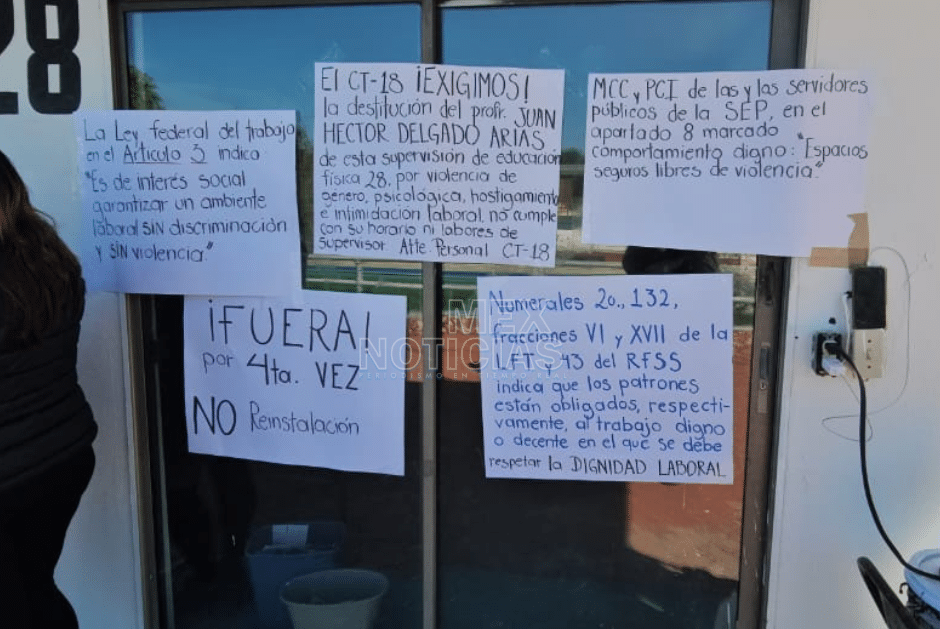 28
La Ley federal del trabajo
en el Artículo 3 indica:
"Es de interés social
garantizar un ambiente
laboral SIN discriminación
y SIN violencia."
El CT-18 ¡EXIGIMOS!
la destitución del profr. JUAN
HECTOR DELGADO ARIAS
de esta supervisión de educación
física 28, por violencia de
género, psicológica, hostigamiento
e intimidación laboral, no cumple
con su horario ni labores de
supervisor. Atte. Personal CT-18
MCC y PCI de las y las servidores
públicos de la SEP, en el
apartado 8 marcado
comportamiento digno: "Espacios
seguros libres de violencia."
¡FUERA!
por 4ta. VEZ
NO Reinstalación
Numerales 2o., 132,
fracciones VI y XVII de la
LFT, 43 del RFSS
indica que los patrones
están obligados, respecti-
vamente, al trabajo digno
o decente en el que se debe
respetar la DIGNIDAD LABORAL
MEX
NOTICIAS
PERIODISMO EN TIEMPO REAL